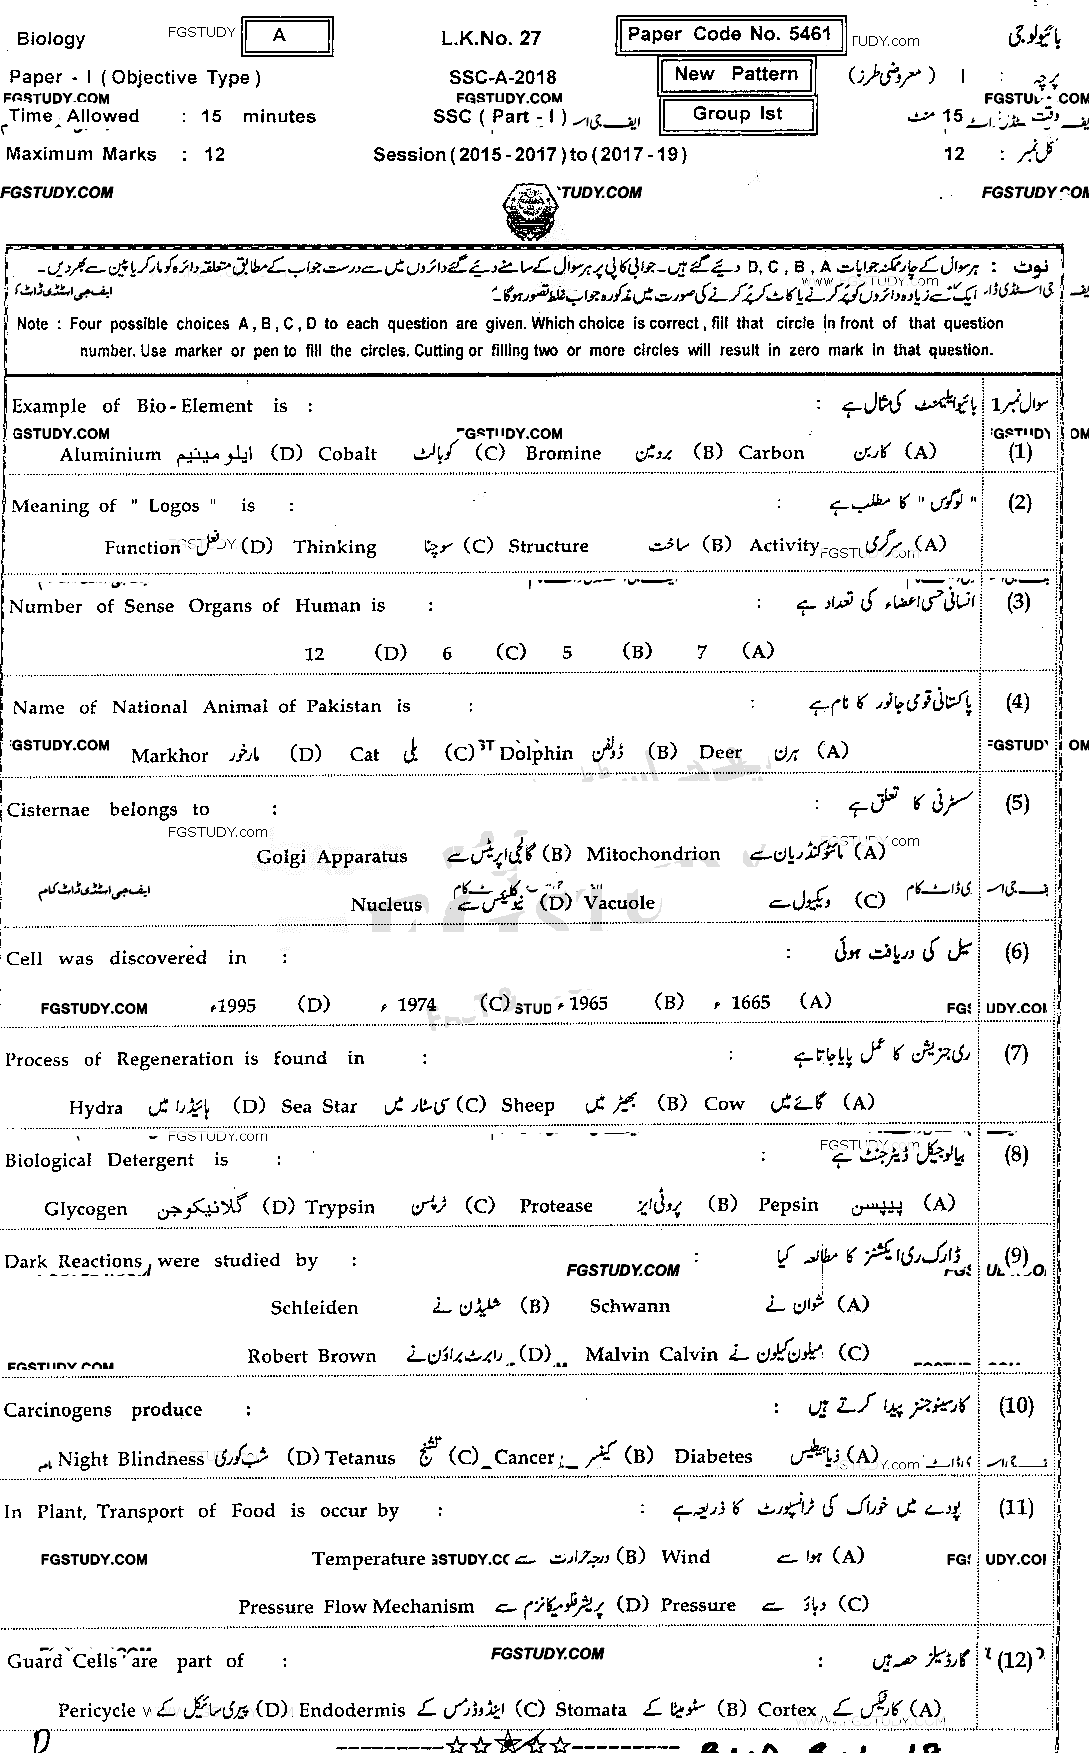 Biology FGSTUDY A L.K.No. 27 Paper Code No. 5461 TUDY.com بائیولوجی
Paper - I ( Objective Type ) SSC-A-2018 New Pattern پرچہ : I ( معروضی طرز )
FGSTUDY.COM FGSTUDY.COM COM
Time Allowed : 15 minutes SSC ( Part - I ) Group Ist وقت : 15 منٹ
Maximum Marks : 12 Session (2015-2017) to (2017-19) کل نمبر : 12
FGSTUDY.COM TUDY.COM FGSTUDY
نوٹ : ہر سوال کے چار ممکنہ جوابات D , C , B , A دیئے گئے ہیں ۔ جوابی کاپی پر ہر سوال کے سامنے دیئے گئے دائروں میں سے درست جواب کے مطابق متعلقہ دائرہ کو مارکر یا پین سے بھر دیں ۔
ایک سے زیادہ دائروں کو پُر کرنے یا کاٹ کر پُر کرنے کی صورت میں مذکورہ جواب غلط تصور ہوگا ۔
Note : Four possible choices A , B , C , D to each question are given. Which choice is correct , fill that circle in front of that question
number. Use marker or pen to fill the circles. Cutting or filling two or more circles will result in zero mark in that question.
Example of Bio - Element is : بائیو ایلیمنٹ کی مثال ہے : سوال نمبر 1
GSTUDY.COM FGSTUDY.COM
Aluminium ایلومینیم (D) Cobalt کوبالٹ (C) Bromine برومین (B) Carbon کاربن (A) (1)
Meaning of " Logos " is : " لوگوس " کا مطلب ہے : (2)
Function فعل (D) Thinking سوچنا (C) Structure ساخت (B) Activity سرگرمی (A)
Number of Sense Organs of Human is : انسانی حسی اعضاء کی تعداد ہے : (3)
12 (D) 6 (C) 5 (B) 7 (A)
Name of National Animal of Pakistan is : پاکستانی قومی جانور کا نام ہے : (4)
GSTUDY.COM Markhor مارخور (D) Cat بلی (C) Dolphin ڈولفن (B) Deer ہرن (A)
Cisternae belongs to : سسٹرنی کا تعلق ہے : (5)
FGSTUDY.com
Golgi Apparatus گالجی اپریٹس سے (B) Mitochondrion مائٹوکنڈریان سے (A)
ایف جی اسٹڈی ڈاٹ کام Nucleus نیوکلیئس سے (D) Vacuole ویکیول سے (C)
Cell was discovered in : سیل کی دریافت ہوئی : (6)
FGSTUDY.COM 1995ء (D) 1974ء (C) 1965ء (B) 1665ء (A)
Process of Regeneration is found in : ری جنریشن کا عمل پایا جاتا ہے : (7)
Hydra ہائیڈرا میں (D) Sea Star سی سٹار میں (C) Sheep بھیڑ میں (B) Cow گائے میں (A)
FGSTUDY.com
Biological Detergent is : بیالوجیکل ڈیٹرجنٹ ہے : (8)
Glycogen گلائیکوجن (D) Trypsin ٹرپسن (C) Protease پروٹی ایز (B) Pepsin پیپسن (A)
Dark Reactions were studied by : ڈارک ری ایکشنز کا مطالعہ کیا : (9)
FGSTUDY.COM
Schleiden شلیڈن نے (B) Schwann شوان نے (A)
FGSTUDY.COM Robert Brown رابرٹ براؤن نے (D) Malvin Calvin میلون کیلون نے (C)
Carcinogens produce : کارسینوجنز پیدا کرتے ہیں : (10)
Night Blindness شب کوری (D) Tetanus تشنج (C) Cancer کینسر (B) Diabetes ذیابیطس (A)
In Plant, Transport of Food is occur by : پودے میں خوراک کی ٹرانسپورٹ کا ذریعہ ہے : (11)
FGSTUDY.COM Temperature درجہ حرارت سے (B) Wind ہوا سے (A)
Pressure Flow Mechanism پریشر فلو میکانزم سے (D) Pressure دباؤ سے (C)
FGSTUDY.COM
Guard Cells are part of : گارڈ سیلز حصہ ہیں : (12)
Pericycle پیری سائیکل کے (D) Endodermis اینڈوڈرمس کے (C) Stomata سٹومیٹا کے (B) Cortex کارٹیکس کے (A)